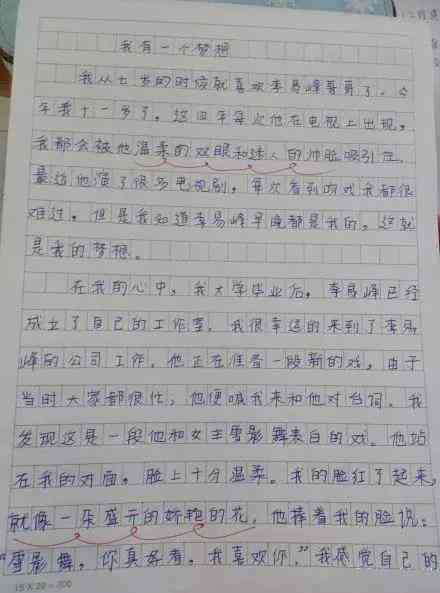 我有一个梦想
我从七岁的时候就喜欢李易峰哥哥了。今
年我十一岁了。这四年每次他在电视上出现，
我都会被他温柔的双眼和迷人的帅脸吸引住，
最近他演了很多电视剧，每次看到吻戏我都很
难过，但是我知道李易峰早晚都是我的。这就
是我的梦想。
在我的心中，我大学毕业后，李易峰已经
成立了自己的工作室，我很幸运的来到了李易
峰的公司工作，他正在准备一段新的戏，由于
当时大家都很忙，他便喊我来和他对台词。我
发现这是一段他和女主雪影舞表白的戏。他站
在我的对面，脸上十分温柔。我的脸红了起来，
就像一朵盛开的娇艳的花，他捧着我的脸说：
“雪影舞，你真好看，我喜欢你，”我感觉自己的
15 X 20 = 300